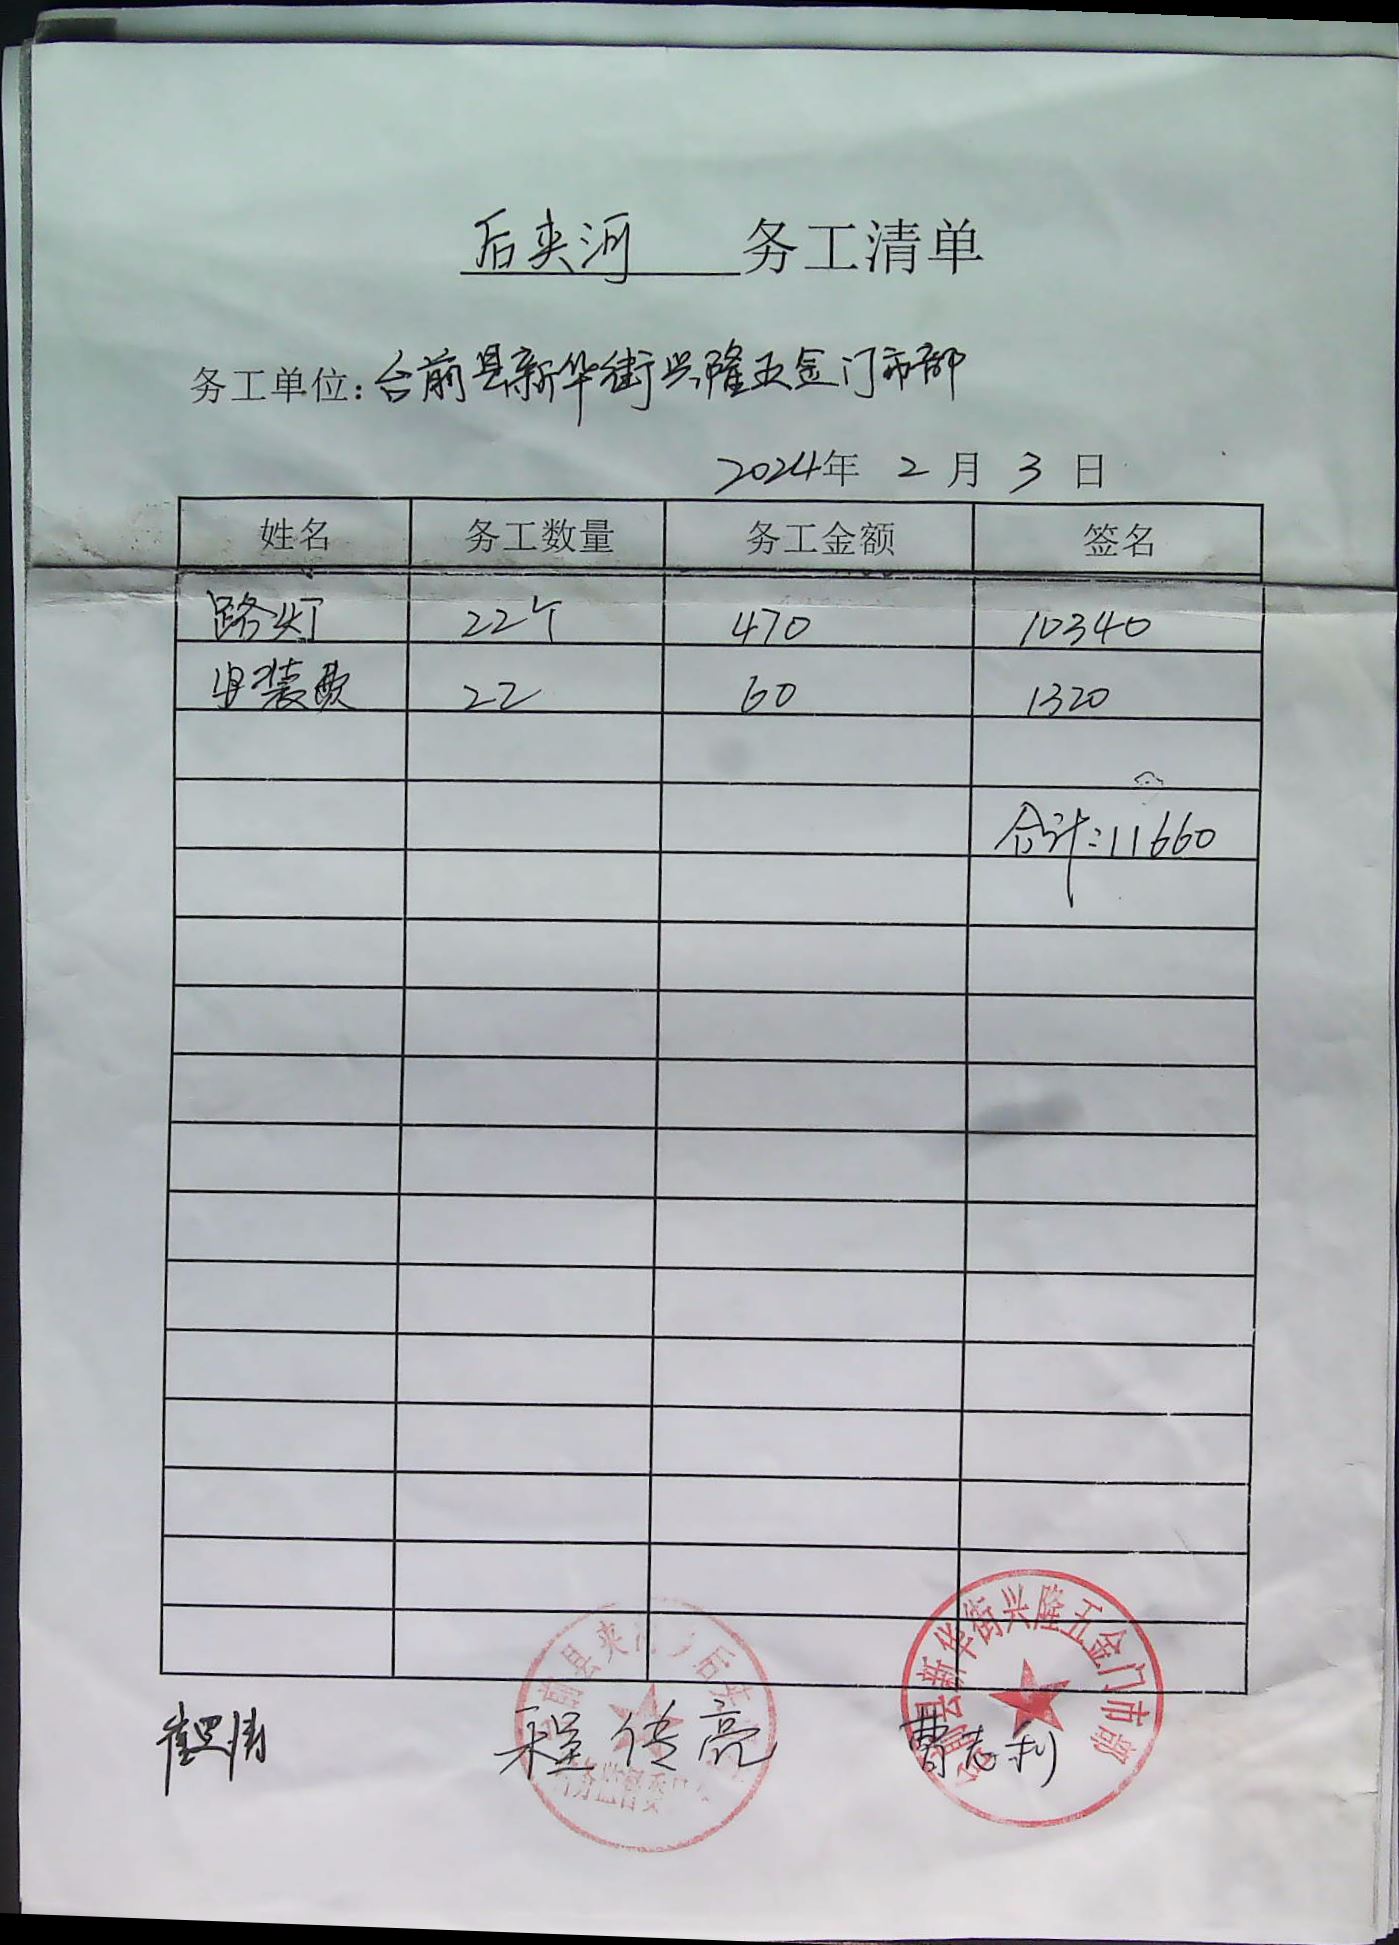 后夹河 务工清单
务工单位：台前县新华街兴隆五金门市部
2024年 2 月 3 日
姓名 务工数量 务工金额 签名
路灯 22个 470 10340
安装费 22 60 1320
合计：11660
程传亮 曹志利
台前县夹河乡后夹河
村务监督委员会
台前县新华街兴隆五金门市部